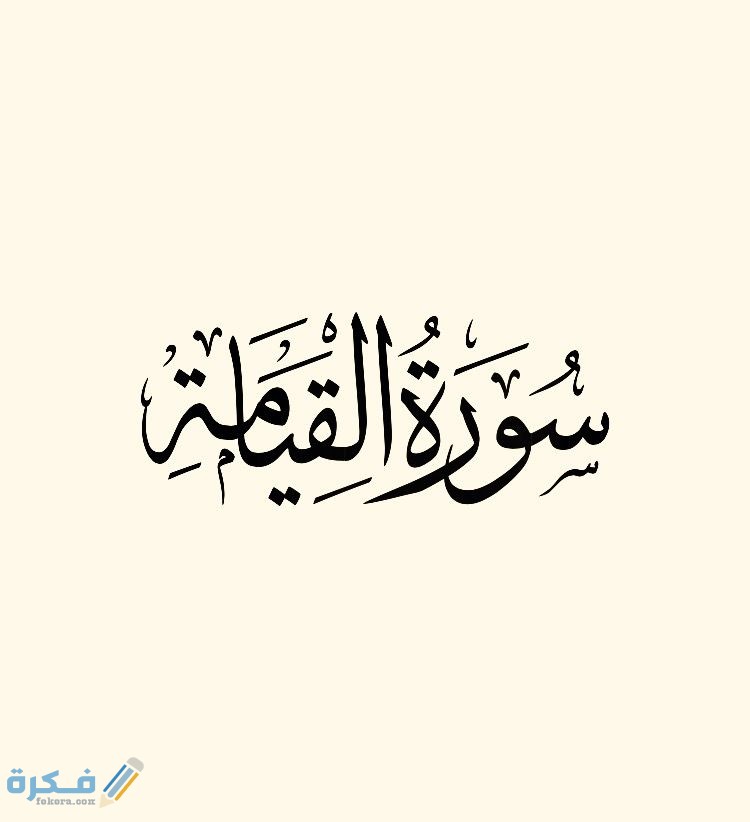 سُورَةُ القِيَامَةِ
فكرة
fekera.com